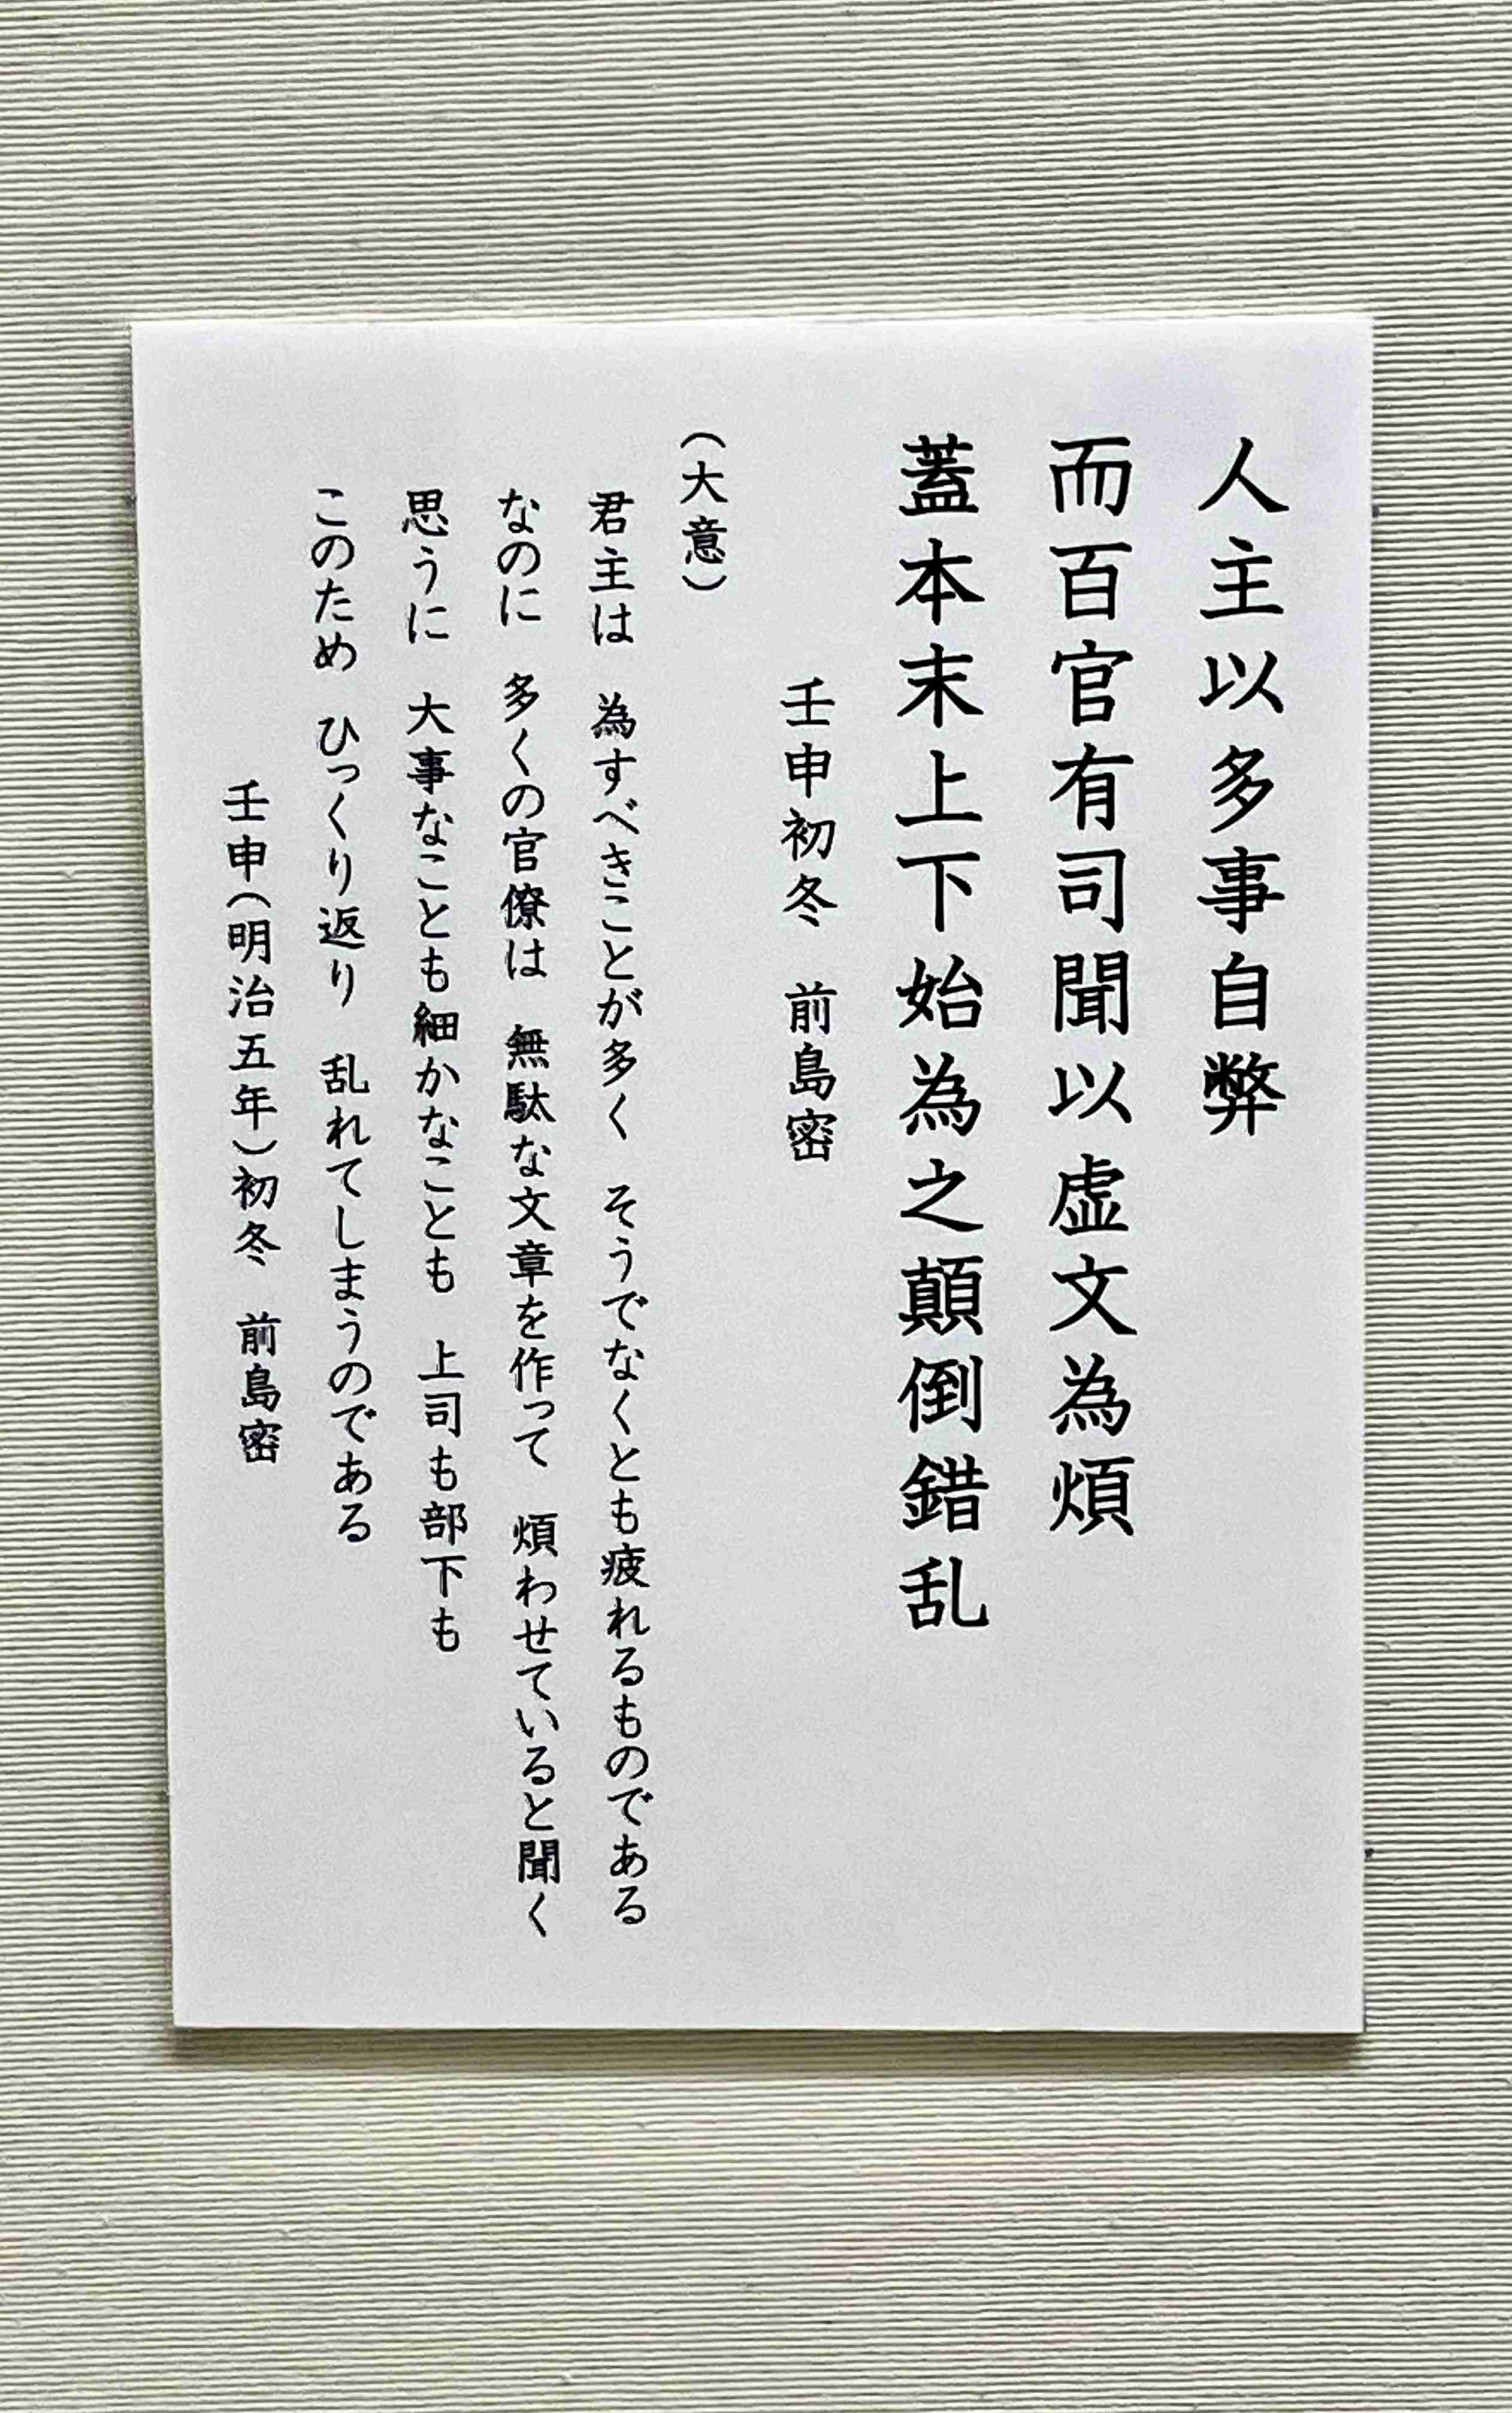 人主以多事自弊
而百官有司聞以虚文為煩
蓋本末上下始為之顛倒錯乱
壬申初冬　前島密
（大意）
君主は　為すべきことが多く　そうでなくとも疲れるものである
なのに　多くの官僚は　無駄な文章を作って　煩わせていると聞く
思うに　大事なことも細かなことも　上司も部下も
このため　ひっくり返り　乱れてしまうのである
壬申（明治五年）初冬　前島密